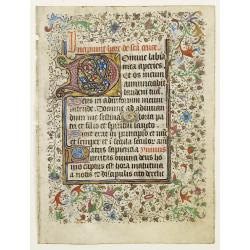 Incipiunt hore de sca cruce
Domine labia
mea aperies.
Et os meum
annunciabit
laudem tuā.
Deus in adiutorium meum
intende. Domine ad adiuuan
dum me festina Gloria pa
tri et filio et spiritui sancto
Sicut erat in principio et nūc
et semper et in secula seculor am
Patris sapiencia Ymnus
veritas diuina deus ho
mo captus est hora matutina
a notis discipulis cito derelic